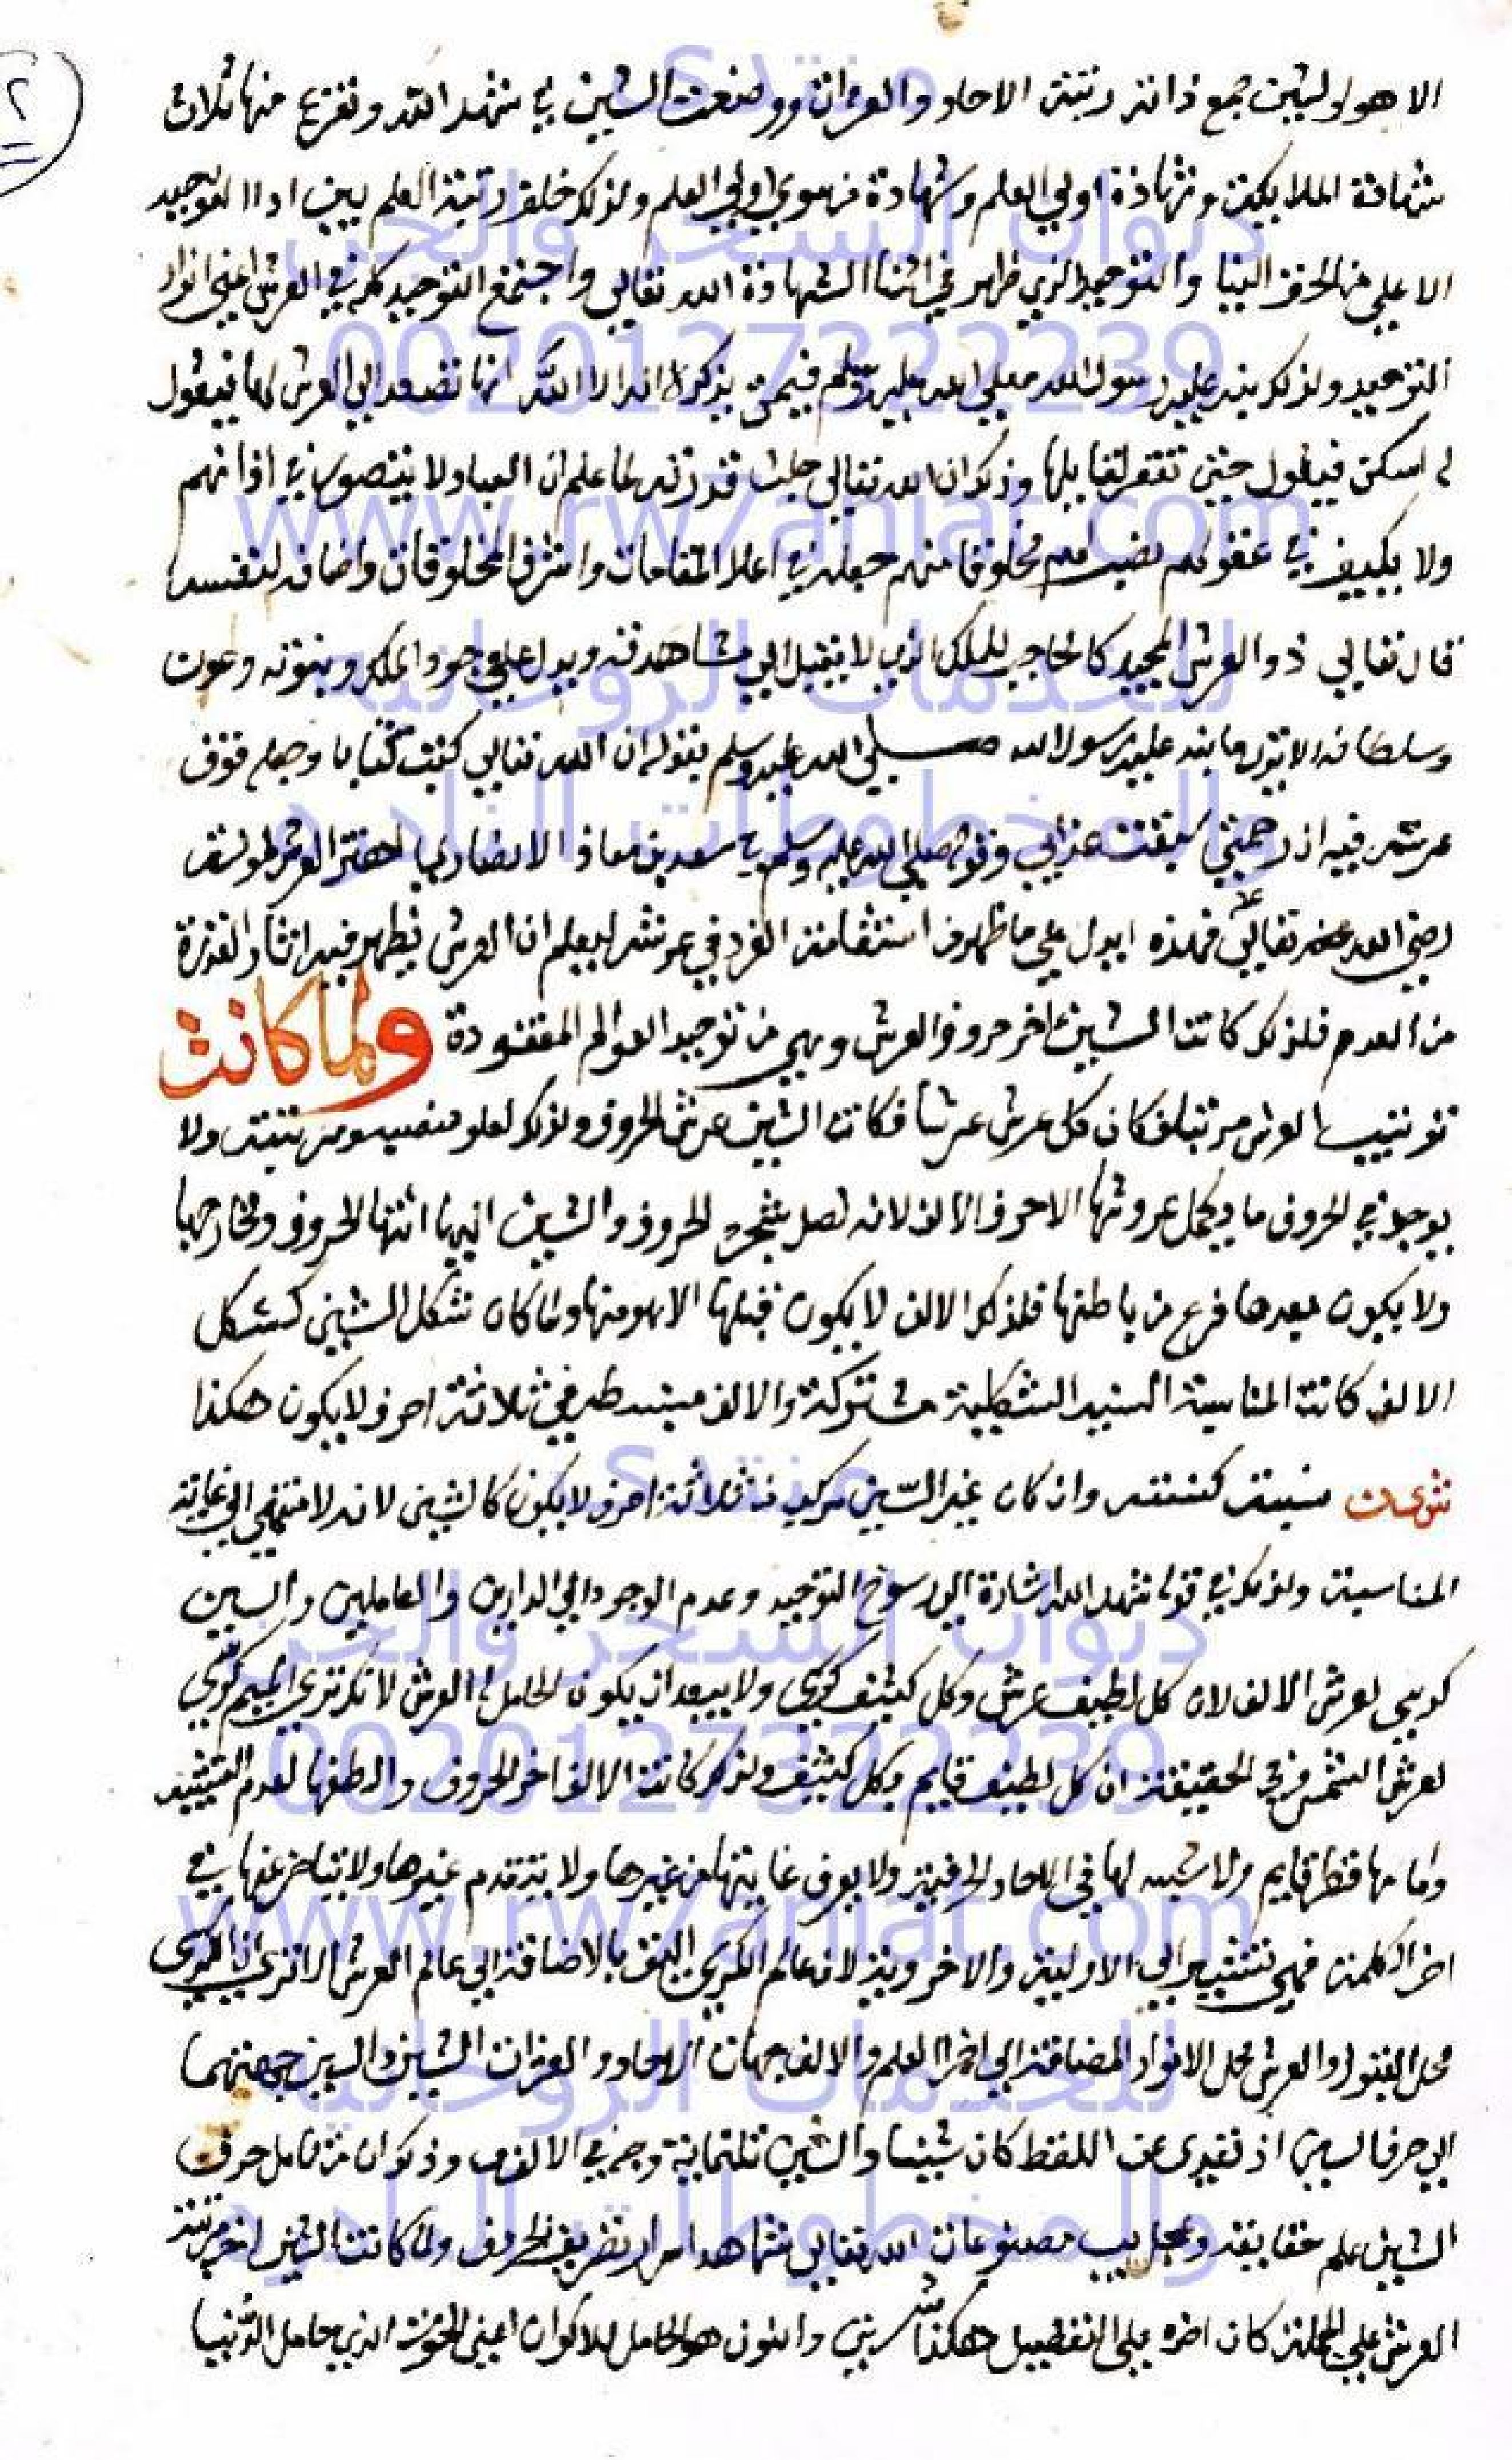 ٢
الا هو او ليثبت جمع ذاته رتبة الاحاد والعشرات ووضعت الشين في شهد الله وتفرع منها ثلاث
شهادة الملايكة وشهادة اولي العلم وشهادة من سوى اولي العلم ولذلك خلق رتبة العلم بين اداا التوحيد
الاعلي من الحق الينا والتوحيد الذي ظهر في اثناا الشهادة الله تعالي واجتمع التوحيد كله في العرش اعني انوار
التوحيد ولذلك ينبه عليه رسول الله صلي الله عليه وسلم فيمن يذكر لا اله الا الله انها تصعد الي العرش لها فيقول
لي اسكن فيقول حتي تغفر لقايلها وذلك ان الله تعالي جلت قدرته لما علم ان العباد لا يتصور في اذانهم
ولا يكيف في عقولهم نصب لهم مخلوقا منهم جعله في اعلا المقامات واشرف المخلوقات واضافه لنفسه
قال تعالي ذو العرش المجيد كالحاجب للملك الذي لا يقبل الي مشاهدته ويدل علي وجود الملك وبنوته وعون
وسلطانه الا ترى ما ينه عليه رسول الله صلي الله عليه وسلم بقوله ان الله تعالي كتب كتابا وجعله فوق
عرشه فيه ان رحمتي سبقت عذابي وقوله صلي الله عليه وسلم في سعد بن معاذ الانصاري اهتز العرش لموته
رضي الله عنه تعالي فهذه ايدل علي ما ظهر من استقامة الفرد في عرشه ليعلم ان العرش يظهر فيه اثار القدرة
من العدم فلذلك كانت الشين اخر حروف العرش وهي من توحيد العوالم المفقودة ولما كانت
ترتيب العرش مرتبا فكان كل عرش عرشا فكانت الشين عرش الحروف ولذلك لعلو منصبه ومرتبته ولا
يوجد في الحروف ما يحمل عروشها الا حرف الالف لانه اصل شجرة الحروف والشين اليها انتها الحروف ومخارجها
ولا يكون بعدها فرع من باطنها فلذلك الالف لا يكون قبلها الا هو منها ولما كان شكل الشين كشكل
الالف كانت المناسبة النسبة الشكلية مشتركة والالف مبسوطة في ثلاثة احرف لا يكون هكذا
شين كنسبته وان كان غير السين مركب من ثلاثة احرف لا يكون كالشين لانه لا منتهي الي غاية
المناسبة ولذلك في قوله شهد الله اشارة الي رسوخ التوحيد وعدم الوجود الي الدارين والعاملين والسين
كرسي لعرش الالف لان كل لطيف عرش وكل كثيف كرسي ولا يبعد ان يكون الحامل العرش لانك تري الميم كرسي
لعرش الشمس وفي الحقيقة ان كل لطيف قايم بكل كثيف ولذلك كانت الالف اخر الحروف والطفها لعدم التشبيه
وامامها قطر قايم ولا شبيه لها في الاحاد الحرفية ولا يعرف غايتها من غيرها ولا يتقدم غيرها ولا يتاخر عنها في
اخر الكلمة فهي تشير الي الاولية والاخروية لان عالم الكرسي اليق بالاضافة الي عالم العرش الا تري ان الكرسي
محل القبول والعرش محل الانوار المضافة الي اخر العلم والالف جهات الاحاد والعشرات الشين والسين جمعتهما
الي حرف السين اذ تعدي عن اللفظ كان شينا والشين ثلثماية وجم في الالف وذلك ان من تامل حرف
الشين علم حقايقه وعجايب مصنوعات الله تعالي شاهد اسرار تصريف الحروف ولما كانت الشين اخر مرتبة
العرش علي الجملة كان اخره علي التفصيل هكذا ش ين والنون هو الحامل للاكوان اعني الحوت الذي حامل الدنيا